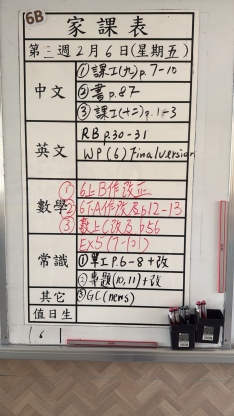 6B
家課表
第三週2月6日(星期五)
中文
①課工(九)p.7-10
②書p.87
③課工(十二)p.1-3
英文
RB p.30-31
WP (6) Final version
數學
①6上B作改正
②6下A作改及p12-13
③數上C改及p56
EX5(7-12)
常識
①單工P.6-8+改
②專題(10,11)+改
其它
③GC(news)
值日生
16